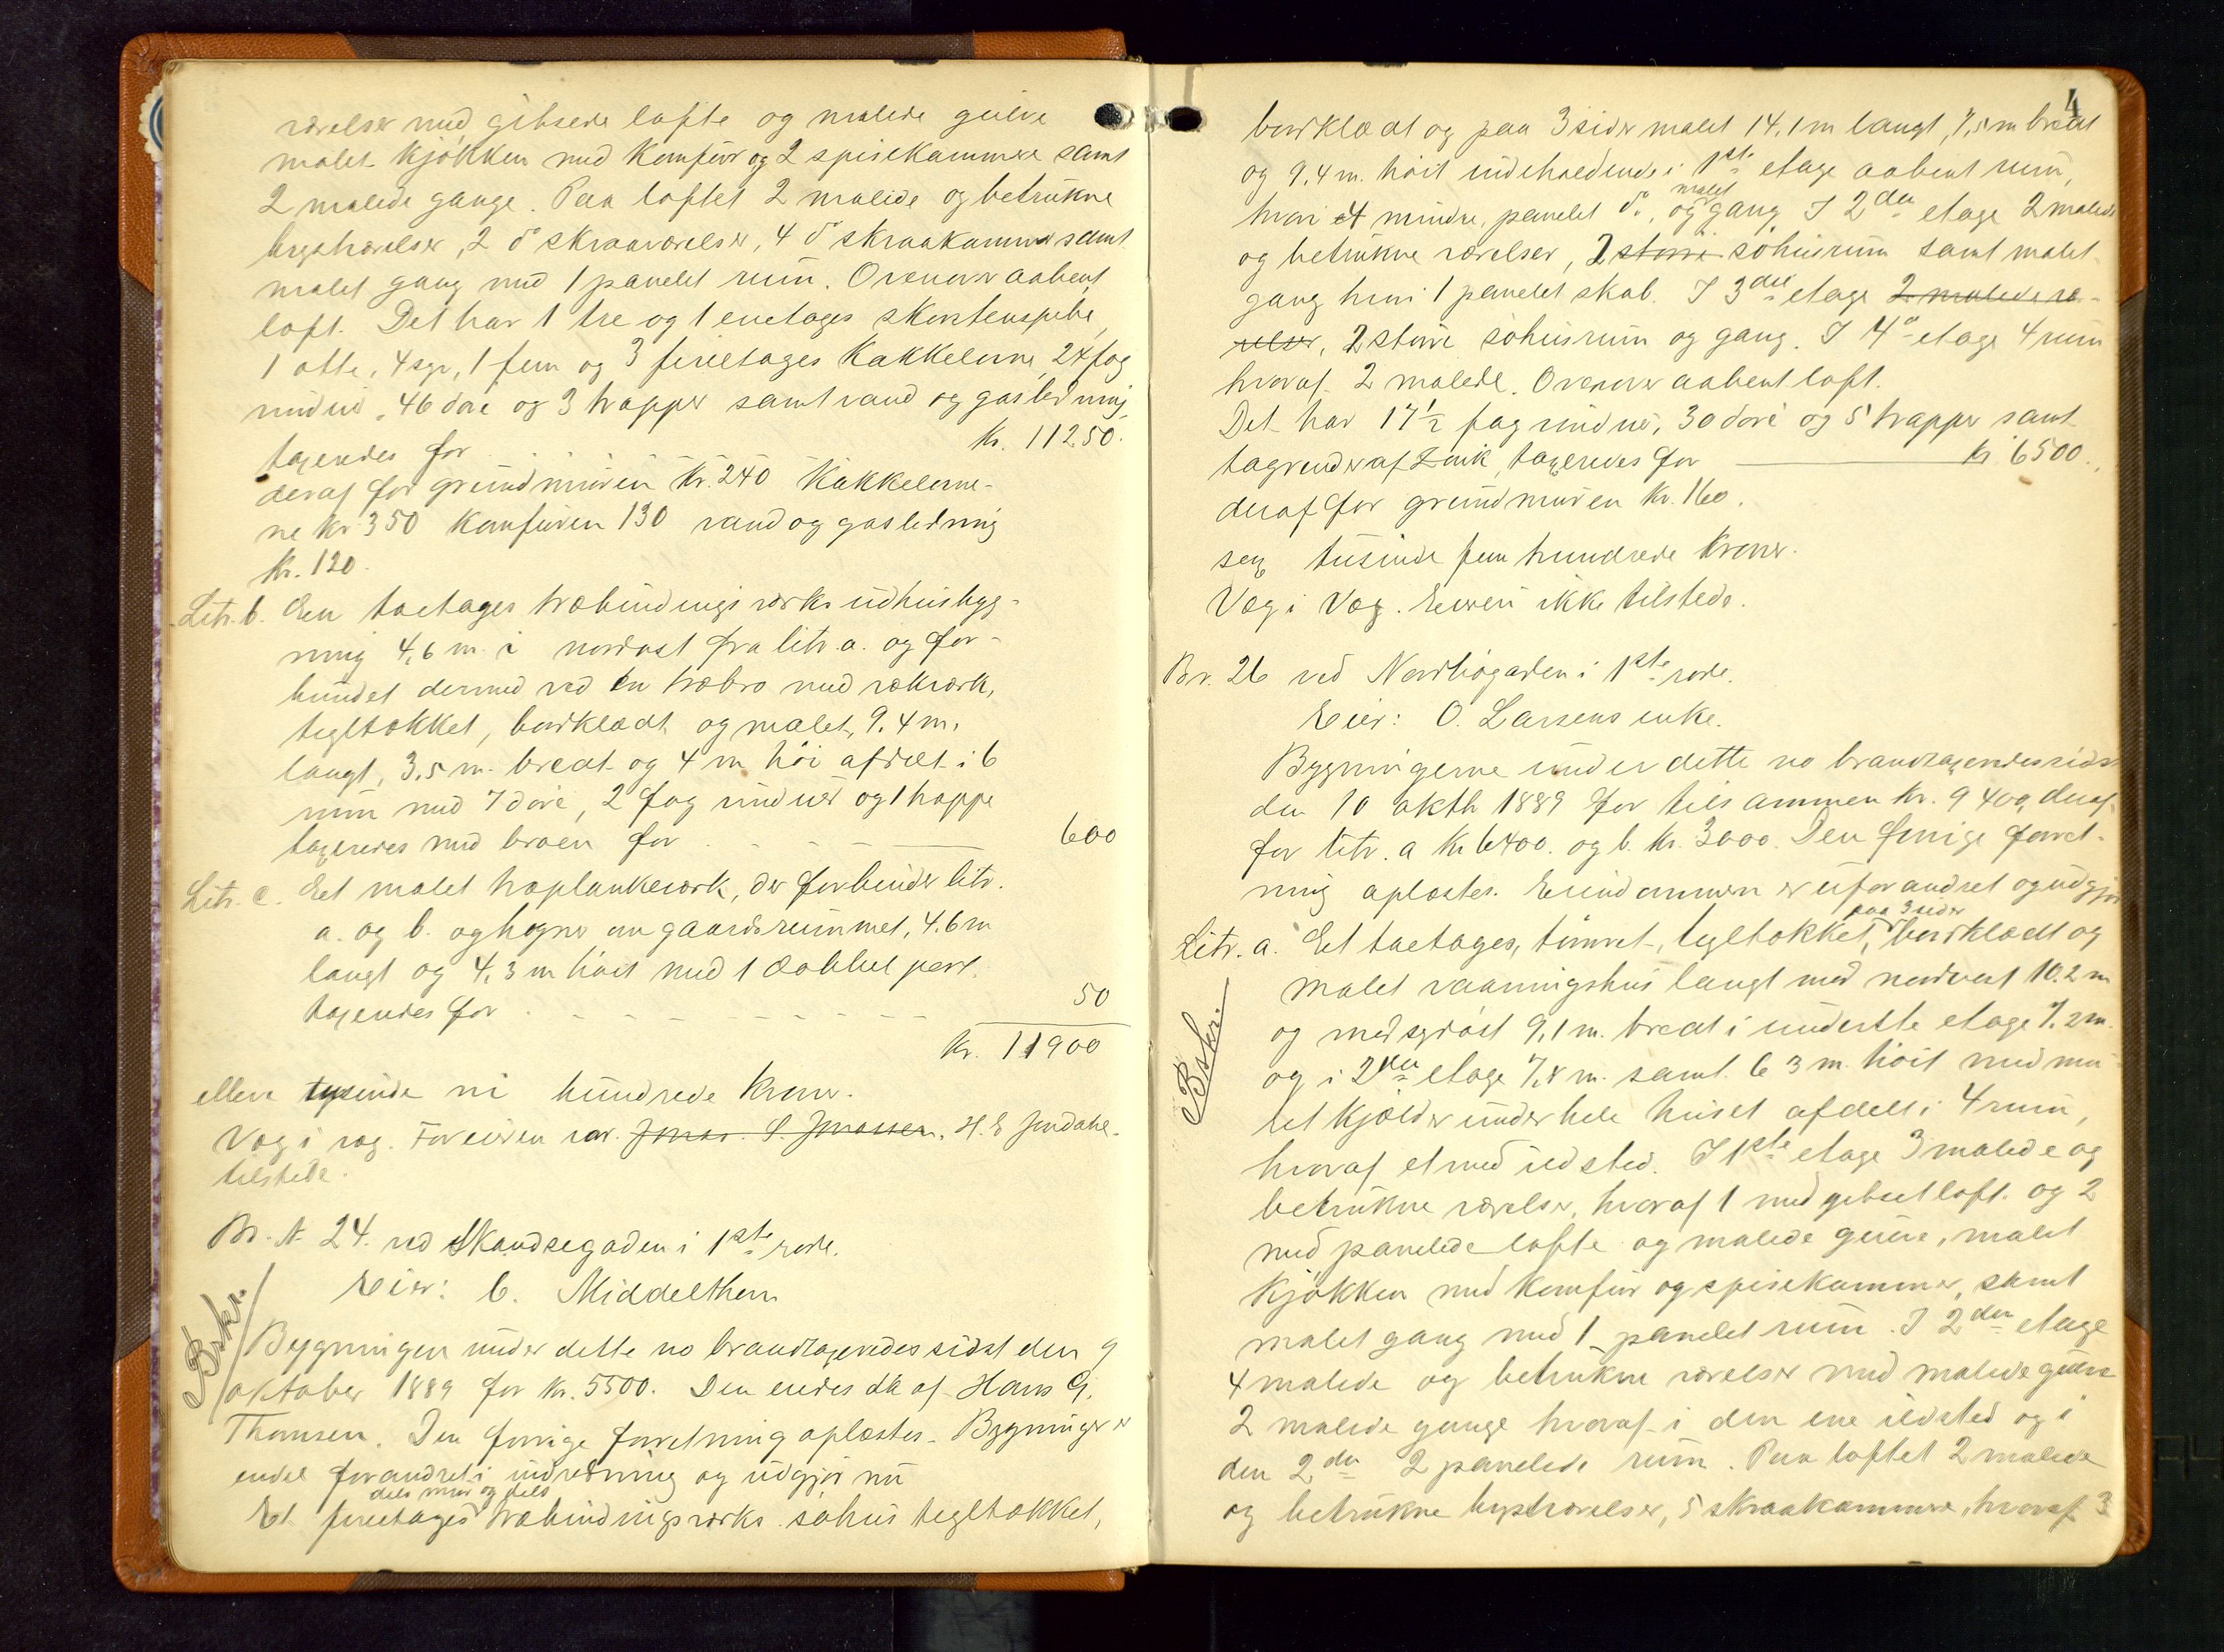 værelser med gibsede lofte og malede gulve
malet kjøkken med komfur og 2 spisekammere samt
2 malede gange. Paa loftet 2 malede og betrukne
kvistværelser, 2 do skraaværelser, 4 do skraakammer samt
malet gang med 1 panelet rum. Ovenover aabent
loft. Det har 1 tre og 1 enetages skorstenspibe,
1 otte, 4 syv, 1 fem og 3 fireetages kakkelovne, 24 fag
vinduer, 46 döre og 3 trapper samt vand og gasledning,
taxeredes for Kr. 11250.
deraf for grundmuren Kr. 240 kakkelovne-
ne kr 350 komfuren 130 vand og gasledning
Kr. 120.
Litr. b. Een toetages træbindingsværks udhusbyg-
ning 4,6 m. i nordost fra litr. a. og for-
bundet dermed ved en træbro med rækværk,
tegltækket, bordklædt og malet, 9.4 m.
langt, 3.5 m. bredt og 4 m höi afdelt i 6
rum med 7 döre, 2 fag vinduer og 1 trappe
taxeredes med broen for 600
Litr. c. Eet malet træplankeværk, der forbinder litr.
a. og b. og hegner om gaardsrummet, 4.6 m
langt og 4,3 m höit med 1 dobbel port.
taxeredes for 50
Kr. 11900
elleve tusinde ni hundrede kroner.
Væg i væg. For eieren var Jonas. S. Jonassen, H. E Jendahl
tilstede.
Br. N. 24. ved Skandsegaden i 1ste rode.
Eier: C. Middelthon
Bskr.
Bygningen under dette no brandtaxeredes sidst den 9
oktober 1889 for Kr. 5500. Den eiedes da af Hans G.
Thomsen. Den forrige forretning oplæstes. Bygningen er
endel forandret i indredning og udgjør nu
dels mur og dels
Et fireetages træbindingsværks söhus tegltækket,
4
bordklædt og paa 3 sider malet 14,1 m langt, 7,5 m bredt
og 9.4 m. höit indeholdende i 1ste etage aabent rum,
malet
hvori et mindre, panelet do, og gang I 2den etage 2 malede
og betrukne værelser, 2 store söhusrum samt malet
gang hvori 1 panelet skab. I 3die etage 2 malede væ-
relser, 2 store söhusrum og gang. I 4de etage 4 rum
hvoraf 2 malede. Ovenover aabent loft.
Det har 17 1/2 fag vinduer, 30 döre og 5 trapper samt
tagrender af Zink, taxeredes for kr 6500.
deraf for grundmuren Kr. 160.
sex tusinde fem hundrede kroner.
Væg i Væg. Eieren ikke tilstede.
Br. 26 ved Nordbögaden i 1ste rode.
Eier: O. Larsens enke.
Bygningerne under dette no brandtaxeredes sidst
den 10 oktb 1889 for tilsammen Kr. 9400, deraf
for litr. a Kr 6400. og b. Kr. 3000. Den forrige forret-
ning oplæstes. Eiendommen er uforandret og udgjør
paa 3 sider
Litr. a. Et toetages, tömret, tegltækket, bordklædt og
Bskr.
malet vaaningshus langt mod nordvest 10.2 m
og mod sydöst 9,1 m. bredt i underste etage 7.2 m.
og i 2den etage 7,8 m. samt 6 3 m. höit med mu-
ret kjælder under hele huset afdelt i 4 rum,
hvoraf et med ildsted. I 1ste etage 3 malede og
betrukne værelser, hvoraf 1 med gibset loft og 2
med panelede lofte og malede gulve, malet
kjøkken med komfur og spisekammer, samt
malet gang med 1 panelet rum. I 2den etage
4 malede og betrukne værelser med malede gulve
2 malede gange hvoraf i den ene ildsted og i
den 2den 2 panelede rum. Paa loftet 2 malede
og betrukne kvistværelser, 5 skraakammere, hvoraf 3